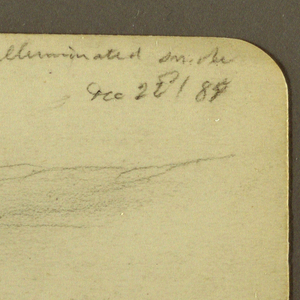 illuminated smoke
Dec 22 / 84